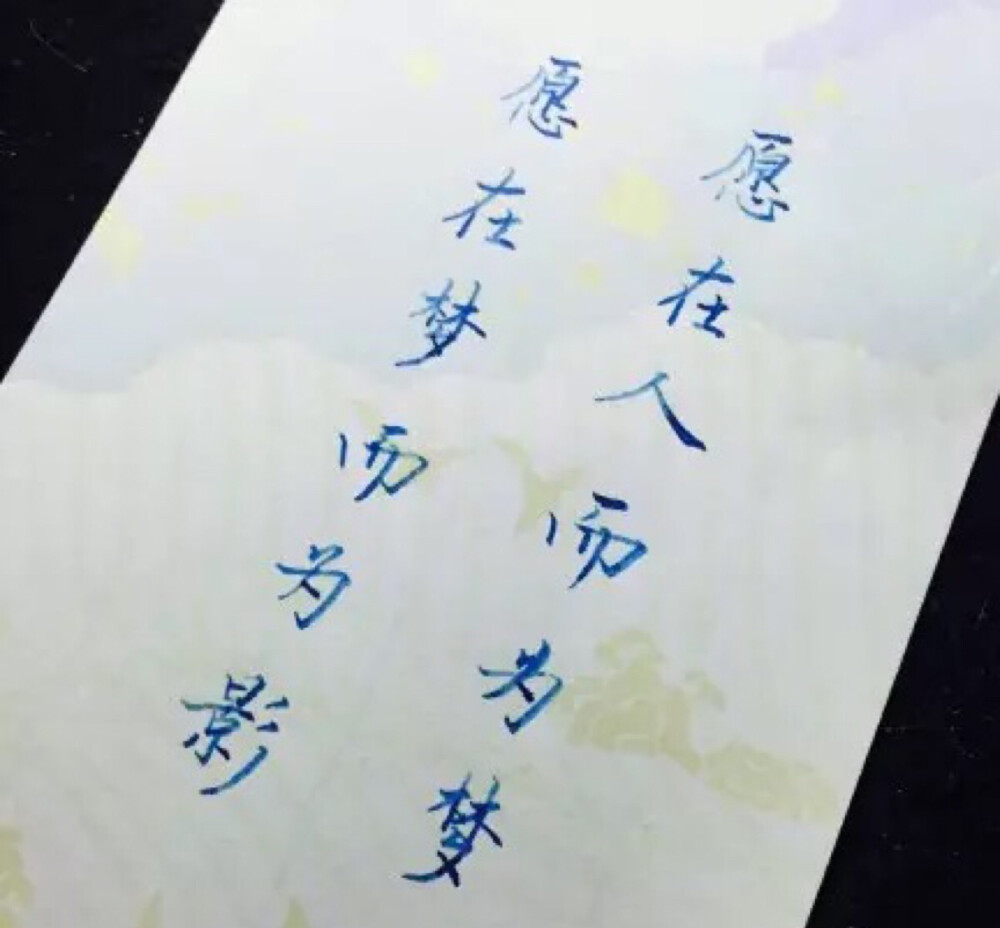 愿在人而为梦
愿在梦而为影